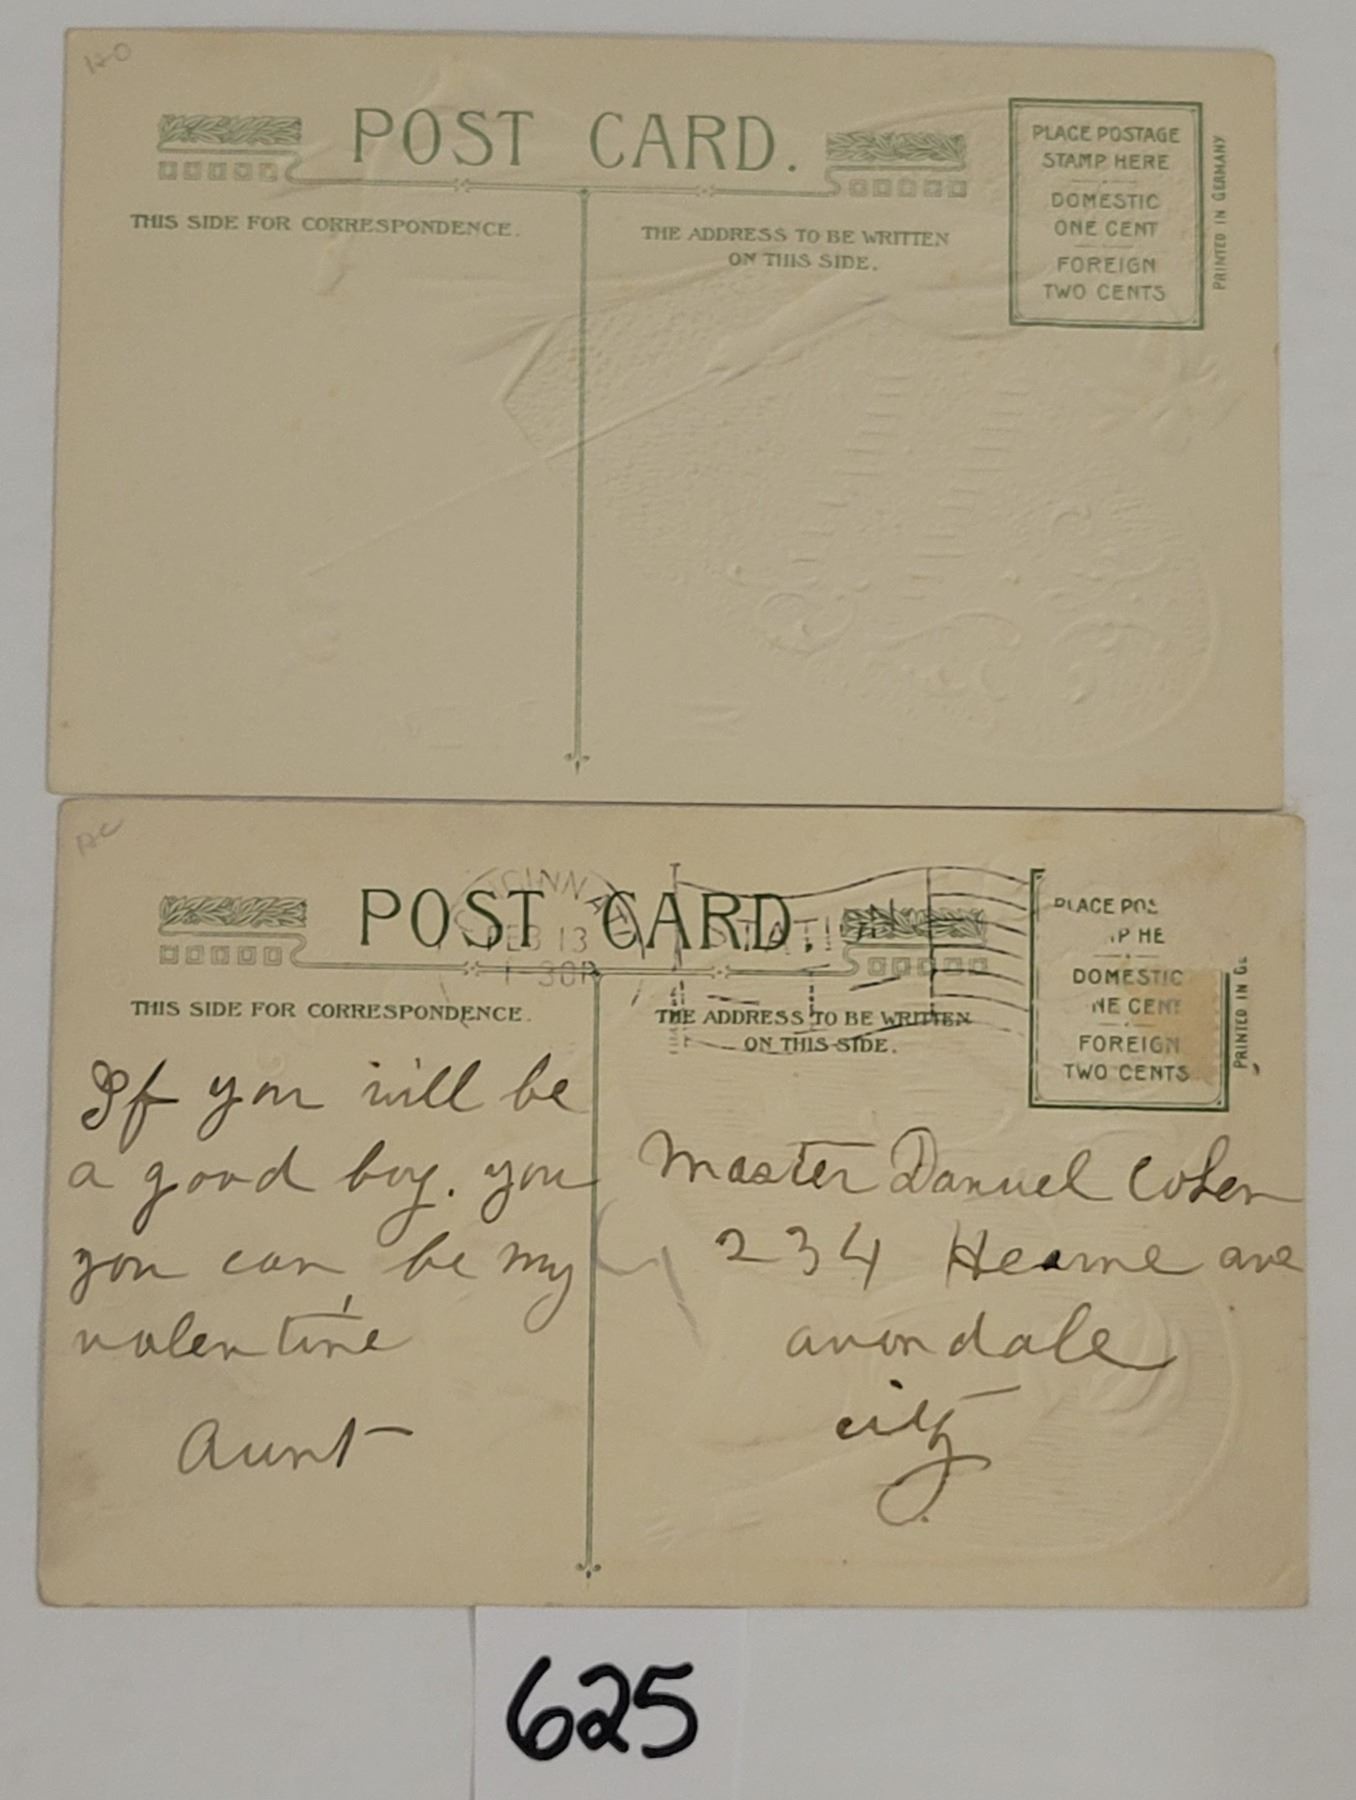 POST CARD.
THIS SIDE FOR CORRESPONDENCE.
THE ADDRESS TO BE WRITTEN
ON THIS SIDE.
PLACE POSTAGE
STAMP HERE
DOMESTIC
ONE CENT
FOREIGN
TWO CENTS
PRINTED IN GERMANY
POST CARD.
FEB 13
1-30P
THIS SIDE FOR CORRESPONDENCE.
THE ADDRESS TO BE WRITTEN
ON THIS SIDE.
PLACE POS
MP HE
DOMESTIC
NE CENT
FOREIGN
TWO CENTS
PRINTED IN GE
If you will be
a good boy. you
you can be my
valentine
Aunt
Master Danuel Cohen
234 Hearne ave
avondale
city
625